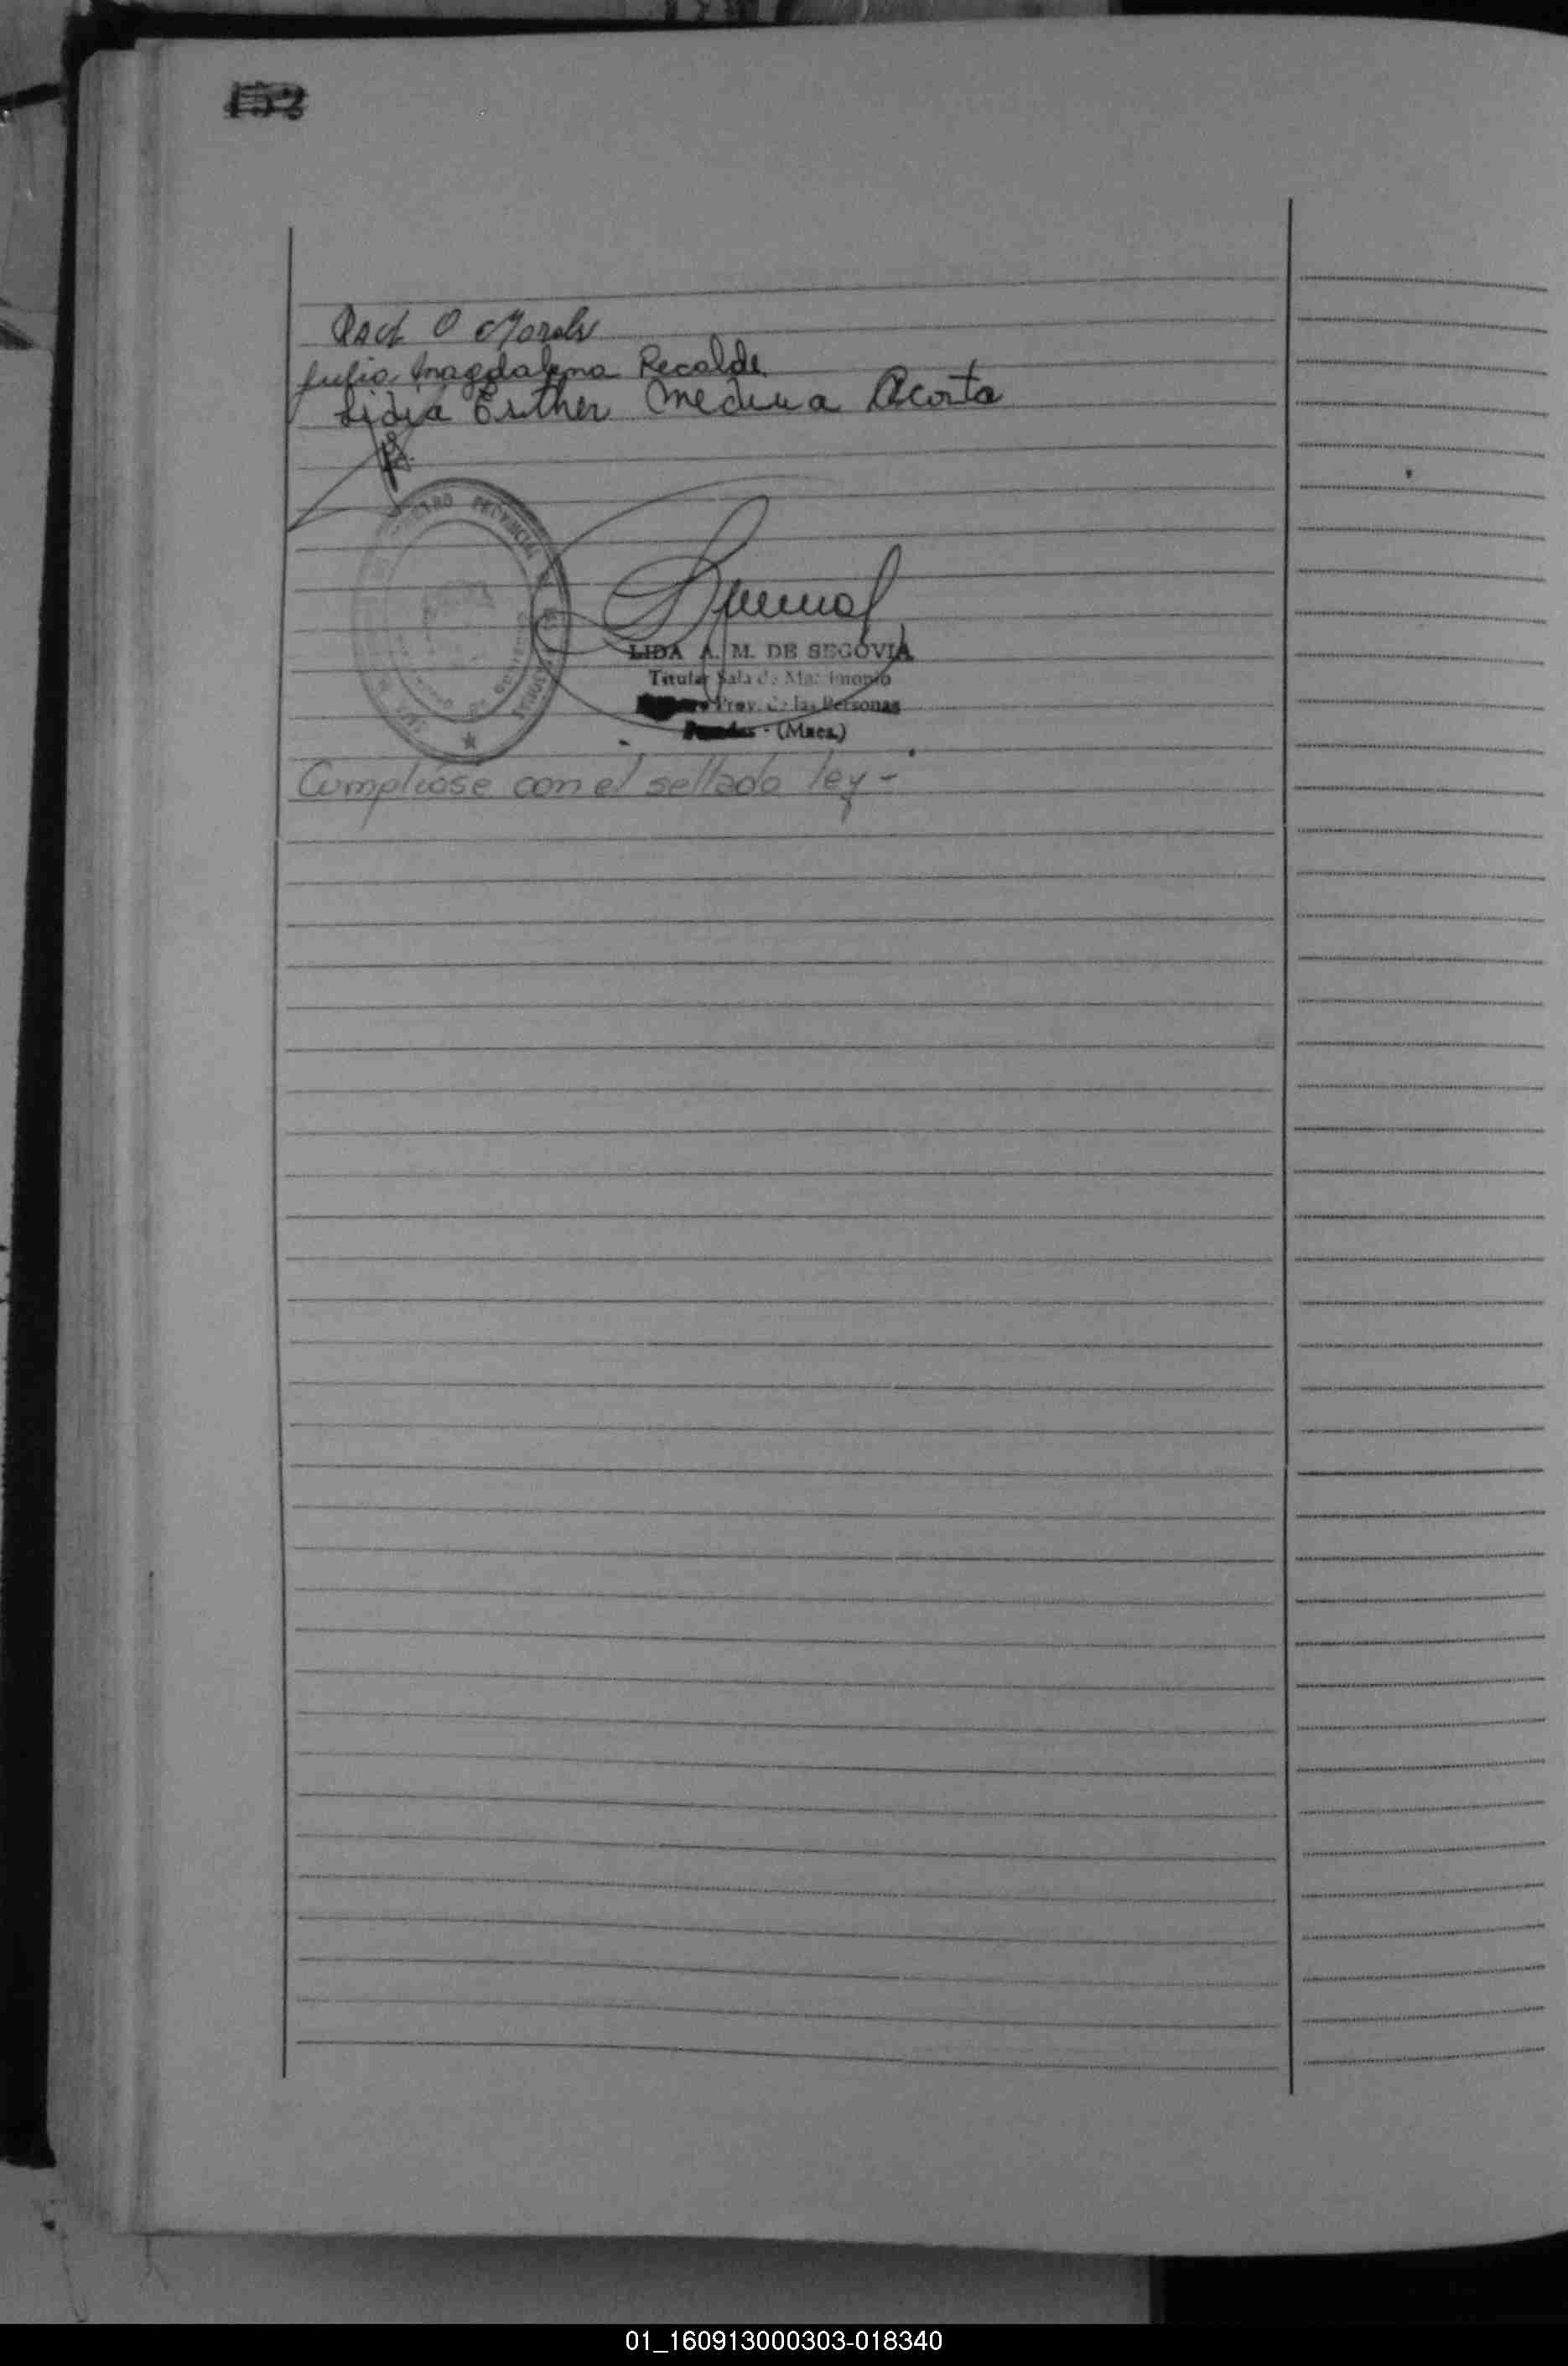 152
O Morales
Julia Magdalena Recalde
Lidia Esther Medina Acosta
REGISTRO PROVINCIAL DE LAS PERSONAS
LIDA A. M. DE SEGOVIA
Titular Sala de Matrimonio
Prov. de las Personas
Posadas - (Mnes.)
Cumpliose con el sellado ley -
01_160913000303-018340